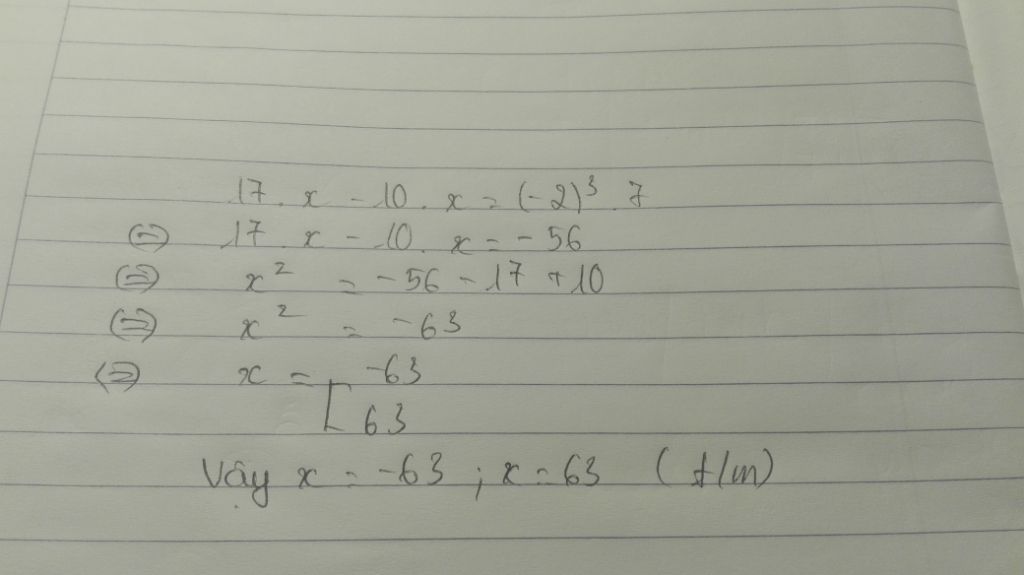 17 . x - 10 . x = (-2)³ . 7
⇔ 17 . x - 10 . x = - 56
⇔ x² = - 56 - 17 + 10
⇔ x² = - 63
⇔ x = [ -63
63
Vậy x = -63 ; x = 63 (t/m)